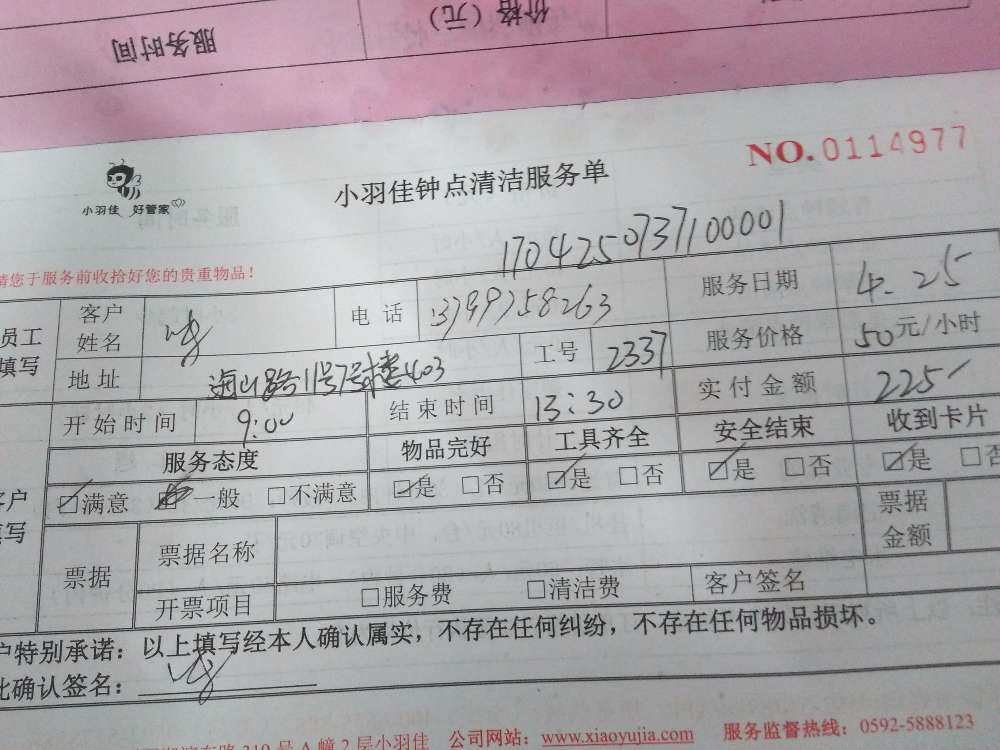 价格（元）
服务时间
NO.0114977
小羽佳 好管家
小羽佳钟点清洁服务单
1704250737100001
请您于服务前收拾好您的贵重物品！
员工填写 客户姓名 电话 13799758263 服务日期 4.25
地址 海山路11号7号楼403 工号 2337 服务价格 50元/小时
开始时间 9:00 结束时间 13:30 实付金额 225
服务态度 物品完好 工具齐全 安全结束 收到卡片
客户填写 ☑满意 一般 □不满意 ☑是 □否 ☑是 □否 ☑是 □否 ☑是 □否
票据 票据名称 票据金额
开票项目 □服务费 □清洁费 客户签名
户特别承诺：以上填写经本人确认属实，不存在任何纠纷，不存在任何物品损坏。
此确认签名：
310号A幢2层小羽佳 公司网站：www.xiaoyujia.com 服务监督热线：0592-5888123